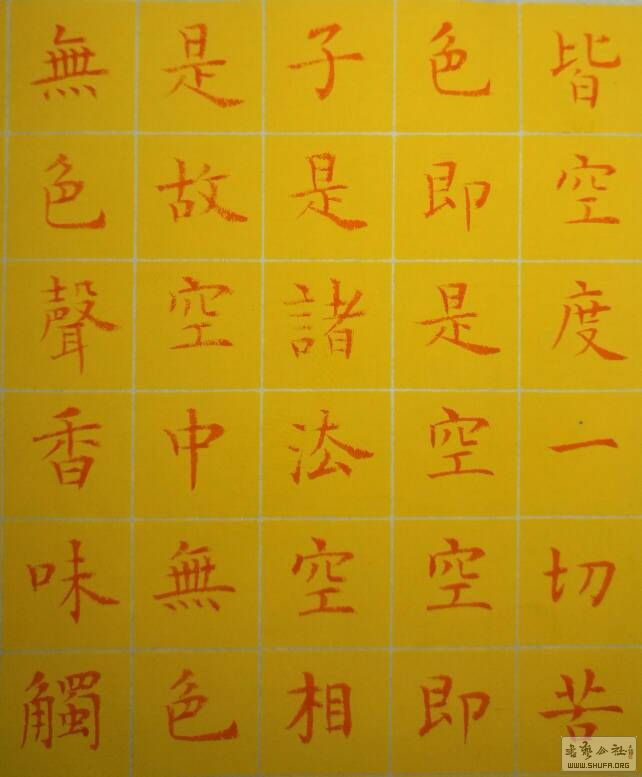 皆空度一切苦
色即是空空即
子是諸法空相
是故空中無色
無色聲香味觸
WWW.SHUFA.ORG